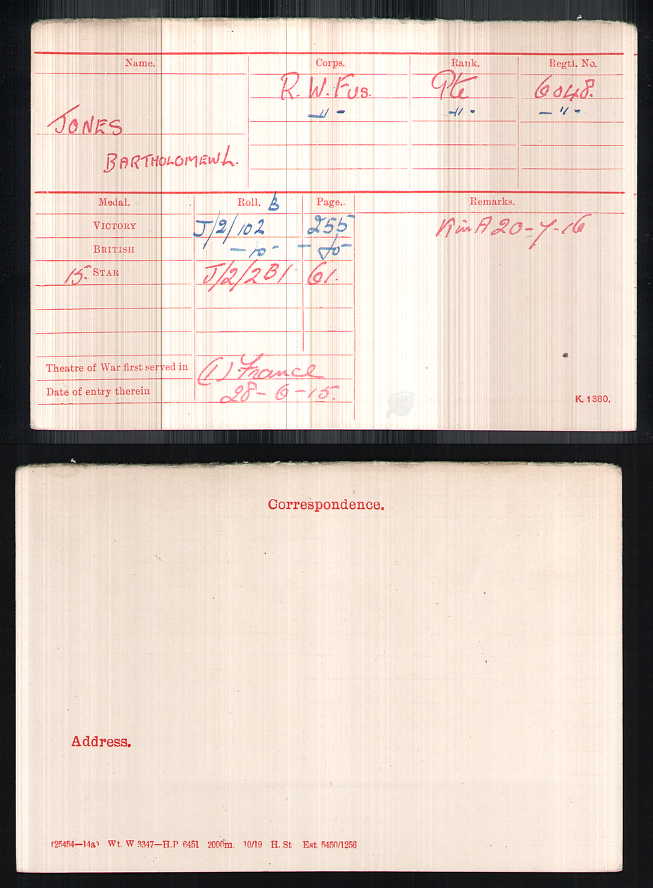 Name. Corps. Rank. Regtl. No.
R. W. Fus. Pte 6048.
—"— —"— —"—
JONES
BARTHOLOMEW L.
Medal. Roll. B Page. Remarks.
VICTORY J/2/102 255 K in A 20-7-16
BRITISH —do— —do—
15 STAR J/2/2B1 61.
Theatre of War first served in (1) France
Date of entry therein 28-6-15.
K. 1380.
Correspondence.
Address.
(25454—14a) Wt. W 3347—H.P 6451 2000m. 10/19 H. St Est 5450/1256